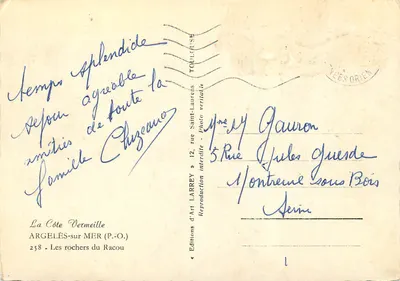 temps splendide
séjour agréable
amitiés de toute la
famille
La Côte Vermeille
ARGELÈS-sur MER (P.-O.)
258 - Les rochers du Racou
Editions d'Art LARREY 12, rue Saint-Laurent TOULOUSE
Reproduction interdite - Photo véritable
Mme M Gauron
5 Rue Jules Guesde
Montreuil sous Bois
Seine